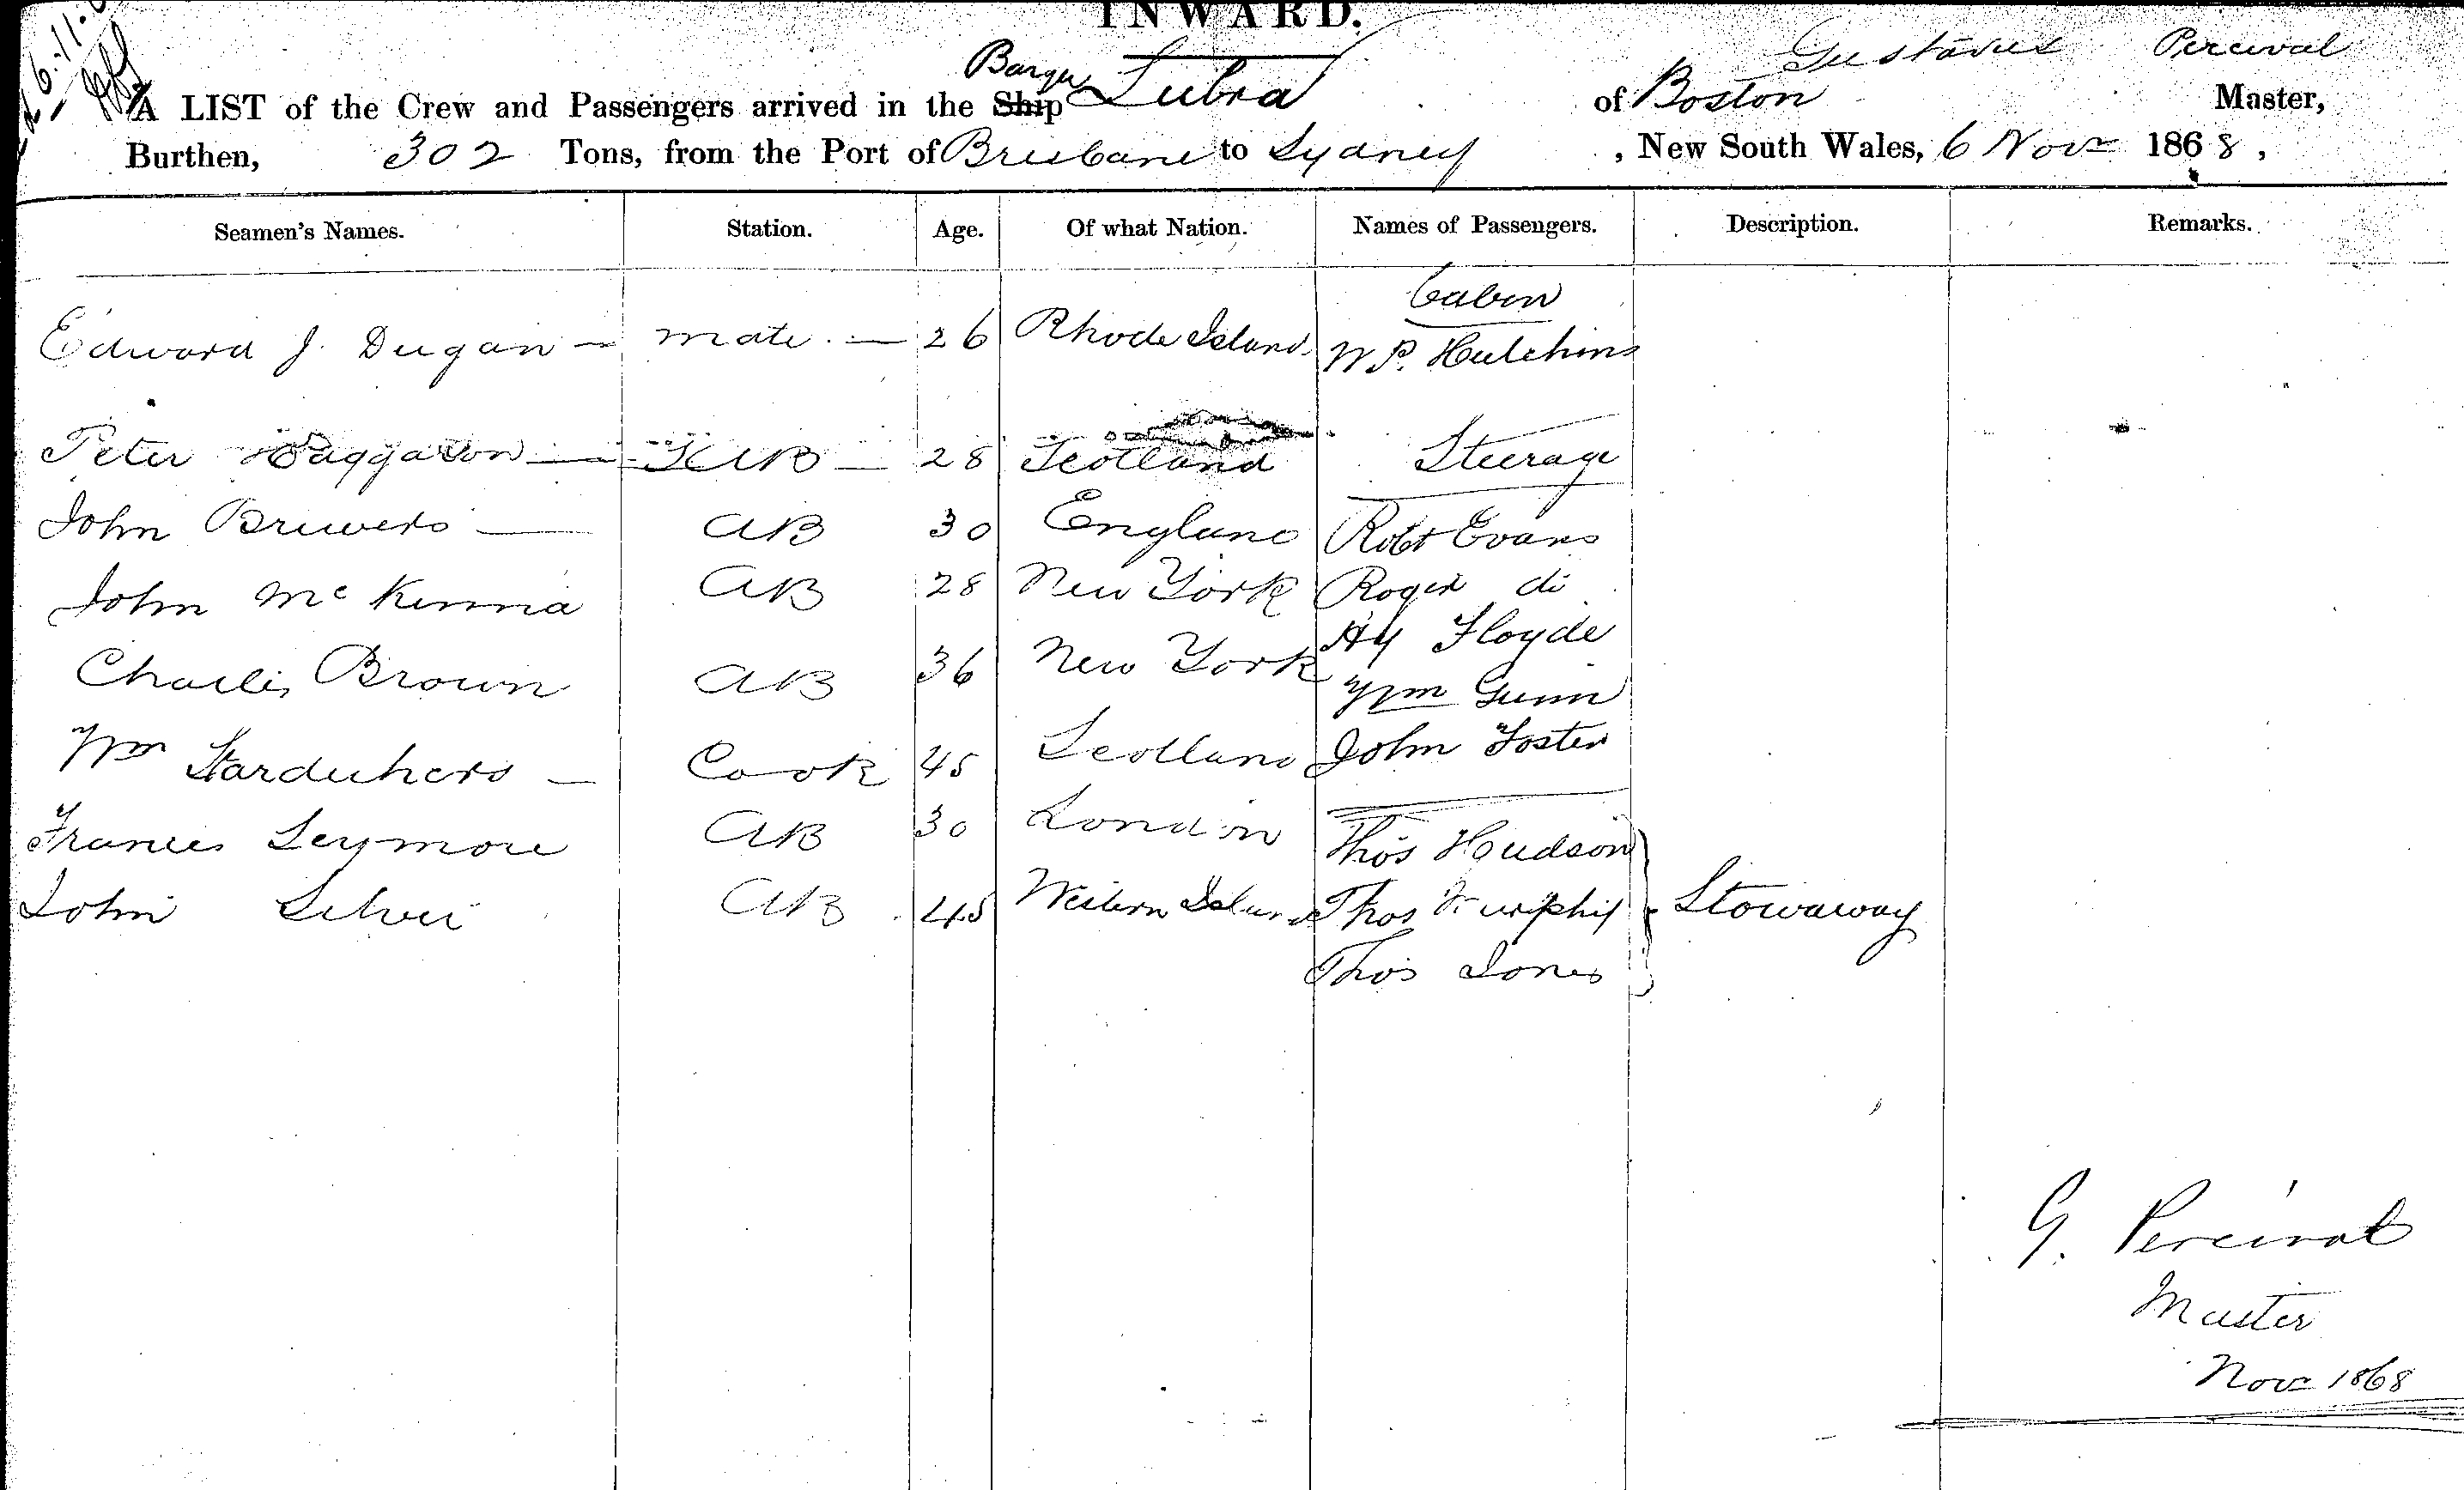 INWARD.
Gustavus Percival
A LIST of the Crew and Passengers arrived in the Ship Barque Lubra of Boston Master,
Burthen, 302 Tons, from the Port of Brisbane to Sydney, New South Wales, 6 Novr 1868,
Seamen's Names. Station. Age. Of what Nation. Names of Passengers. Description. Remarks.
Cabin
Edward J. Dugan — mate — 26 Rhode Island W P. Hutchins
Peter — AB — 28 Scotland Steerage
John Brewers — AB 30 England Robt Evans
John McKenna AB 28 New York Roger do
Charles Brown AB 36 New York Hy Floyde
Wm Gunn
Wm — Cook 45 Scotland John Foster
Frances Seymore AB 30 London Thos Houdson
John Silver AB 45 Western Islands Thos Murphy Stowaway
Thos Jones
G. Percival
Master
Novr 1868